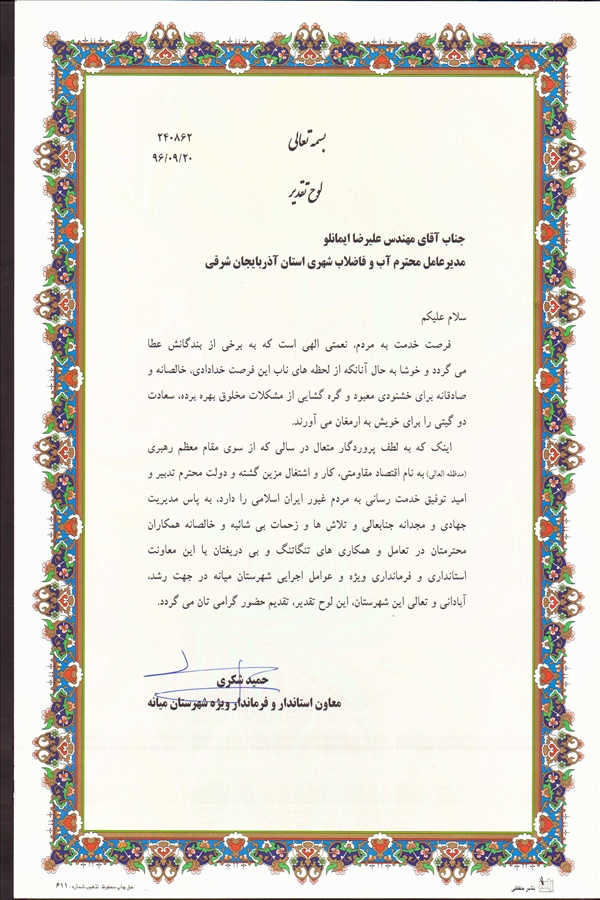 بسمه تعالی
۲۴۰۸۶۲
۹۶/۰۹/۲۰
لوح تقدیر
جناب آقای مهندس علیرضا ایمانلو
مدیرعامل محترم آب و فاضلاب شهری استان آذربایجان شرقی
سلام علیکم
فرصت خدمت به مردم، نعمتی الهی است که به برخی از بندگانش عطا
می گردد و خوشا به حال آنانکه از لحظه های ناب این فرصت خدادادی، خالصانه و
صادقانه برای خشنودی معبود و گره گشایی از مشکلات مخلوق بهره برده، سعادت
دو گیتی را برای خویش به ارمغان می آورند.
اینک که به لطف پروردگار متعال در سالی که از سوی مقام معظم رهبری
(مدظله العالی) به نام اقتصاد مقاومتی، کار و اشتغال مزین گشته و دولت محترم تدبیر و
امید توفیق خدمت رسانی به مردم غیور ایران اسلامی را دارد، به پاس مدیریت
جهادی و مجدانه جنابعالی و تلاش ها و زحمات بی شائبه و خالصانه همکاران
محترمتان در تعامل و همکاری های تنگاتنگ و بی دریغتان با این معاونت
استانداری و فرمانداری ویژه و عوامل اجرایی شهرستان میانه در جهت رشد،
آبادانی و تعالی این شهرستان، این لوح تقدیر، تقدیم حضور گرامی تان می گردد.
حمید شکری
معاون استاندار و فرماندار ویژه شهرستان میانه
نشر حفظی
حق چاپ محفوظ تذهیب شماره: ۶۱۱